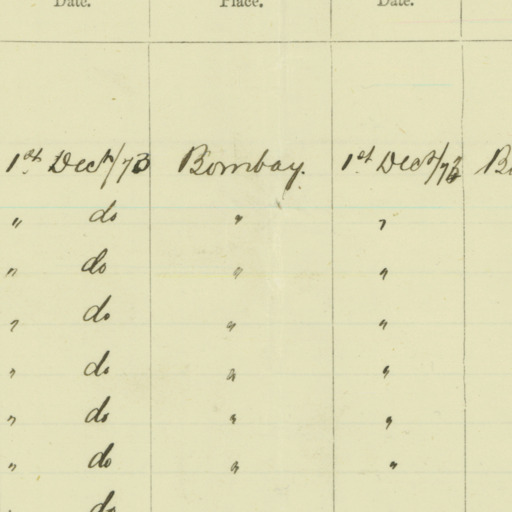 Date. Place. Date.
1st Decr/73 Bombay. 1st Decr/73
" do " "
" do " "
" do " "
" do " "
" do " "
" do " "
" do